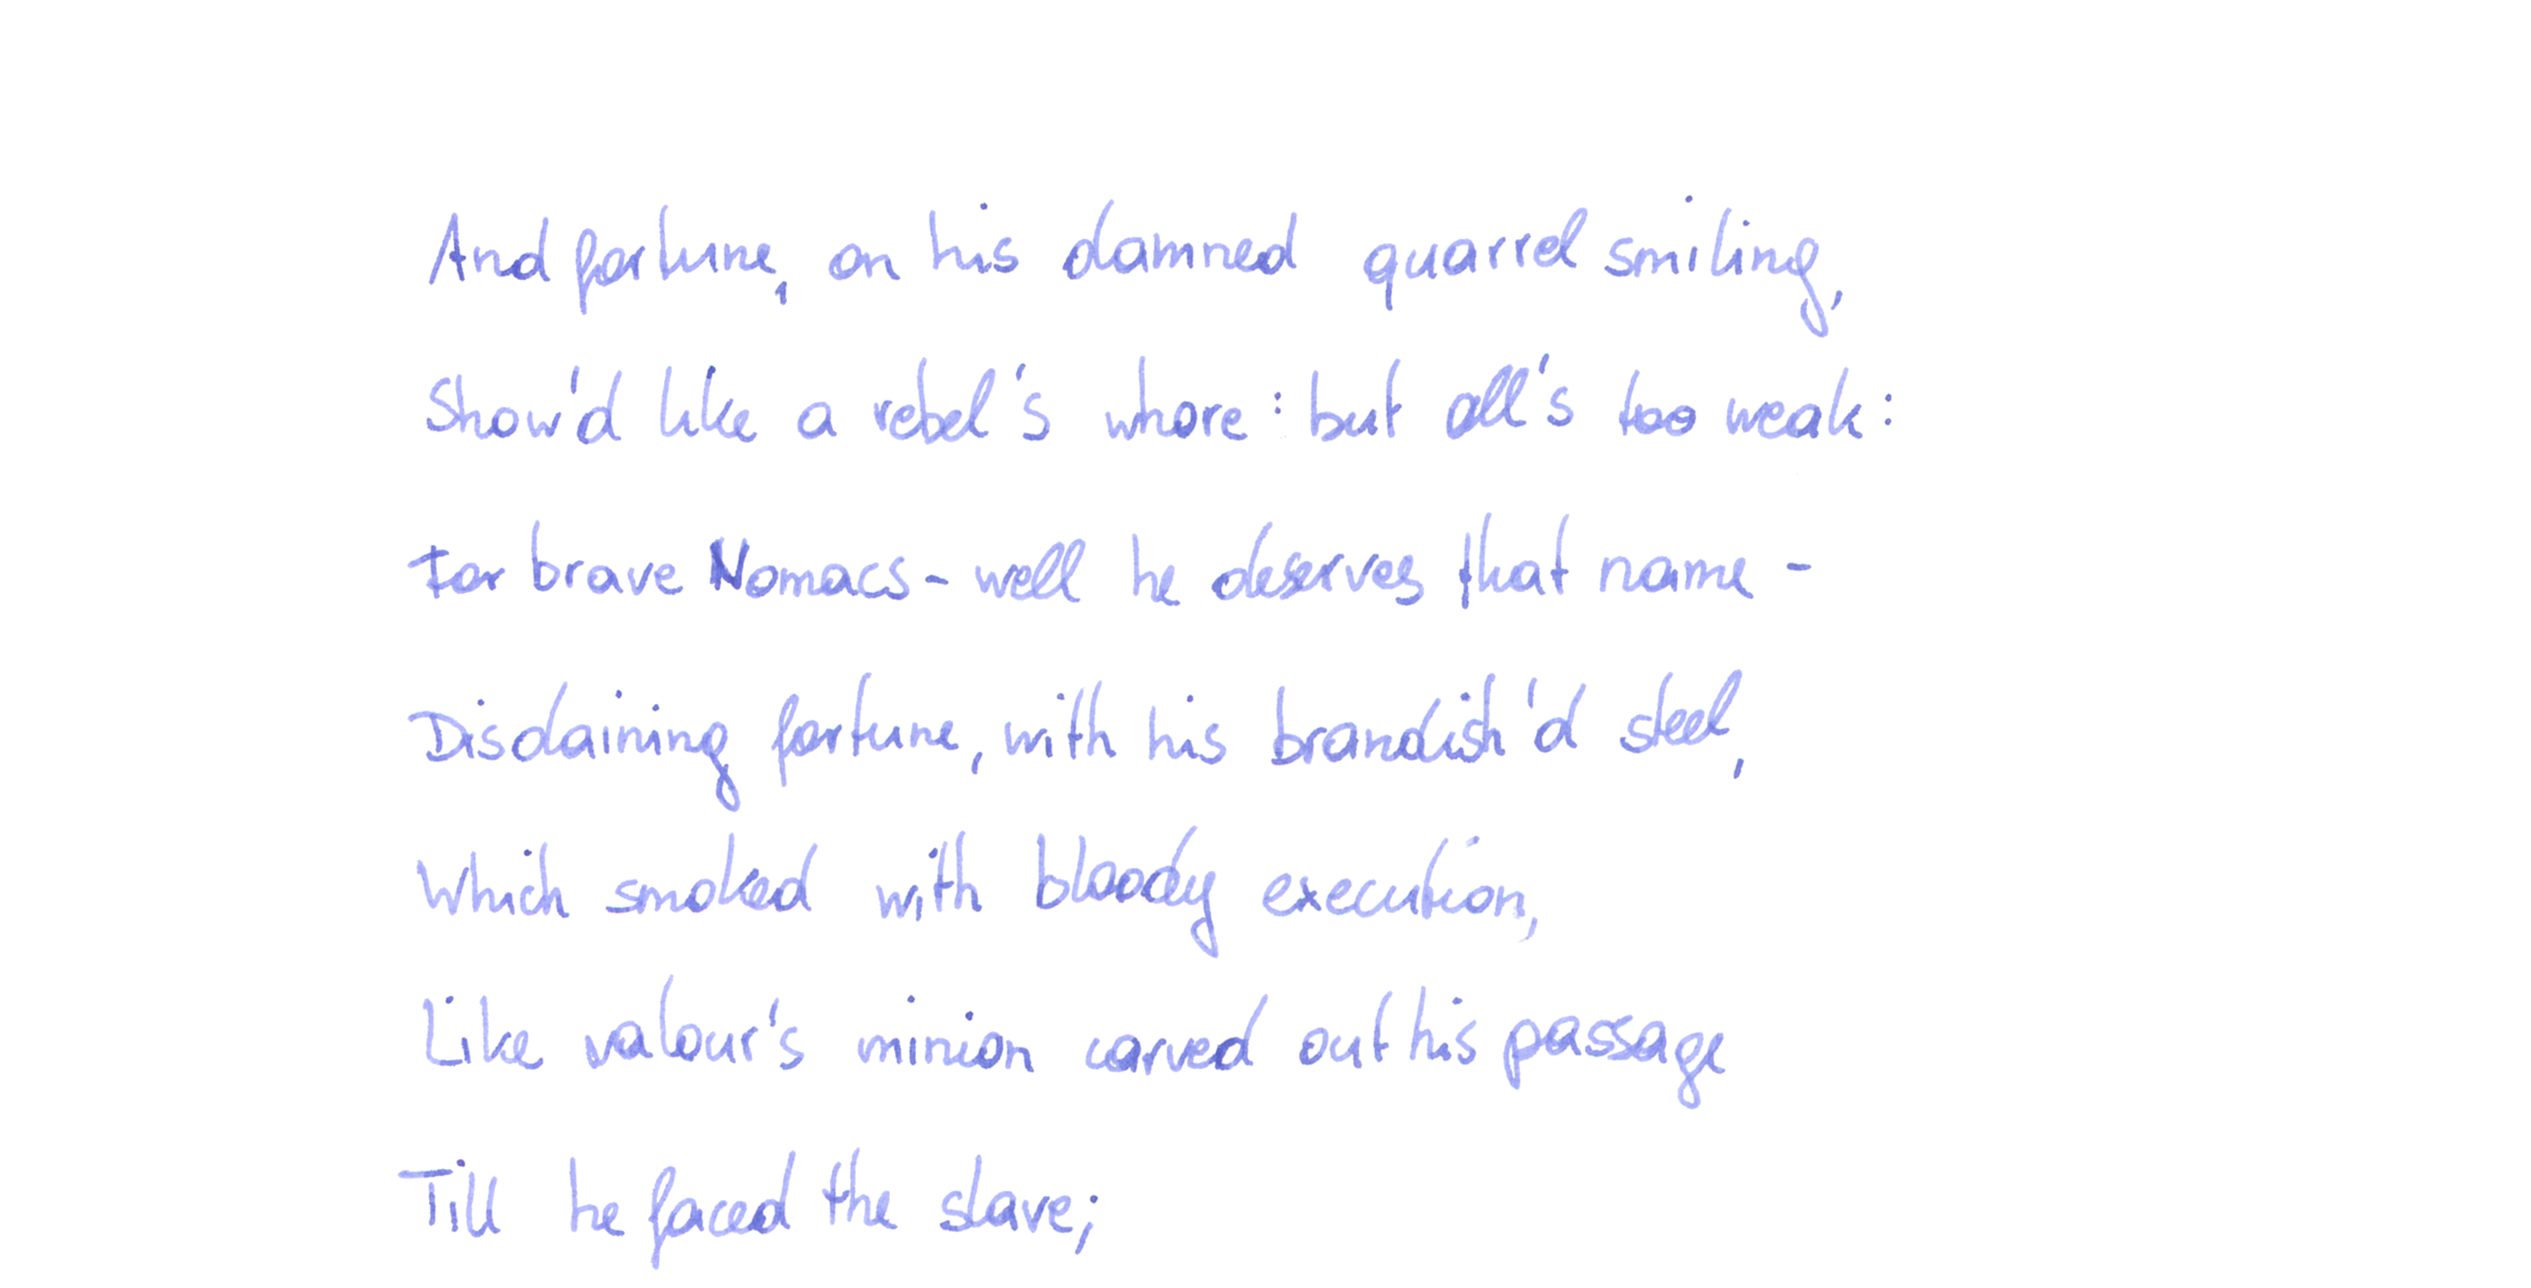 And fortune, on his damned quarrel smiling,
Show'd like a rebel's whore : but all's too weak :
For brave Nomacs - well he deserves that name -
Disdaining fortune, with his brandish'd steel,
Which smoked with bloody execution,
Like valour's minion carved out his passage
Till he faced the slave;